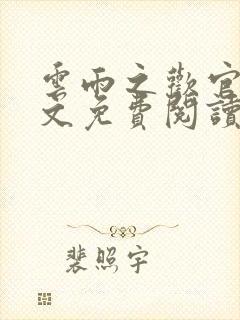 雲雨之歡官
文免費閱讀
裴照宇